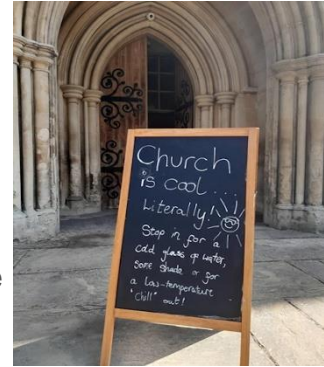 e
Church
is cool...
Literally!
Stop in for a
cold glass of water,
some shade or for
a low-temperature
"Chill" out!